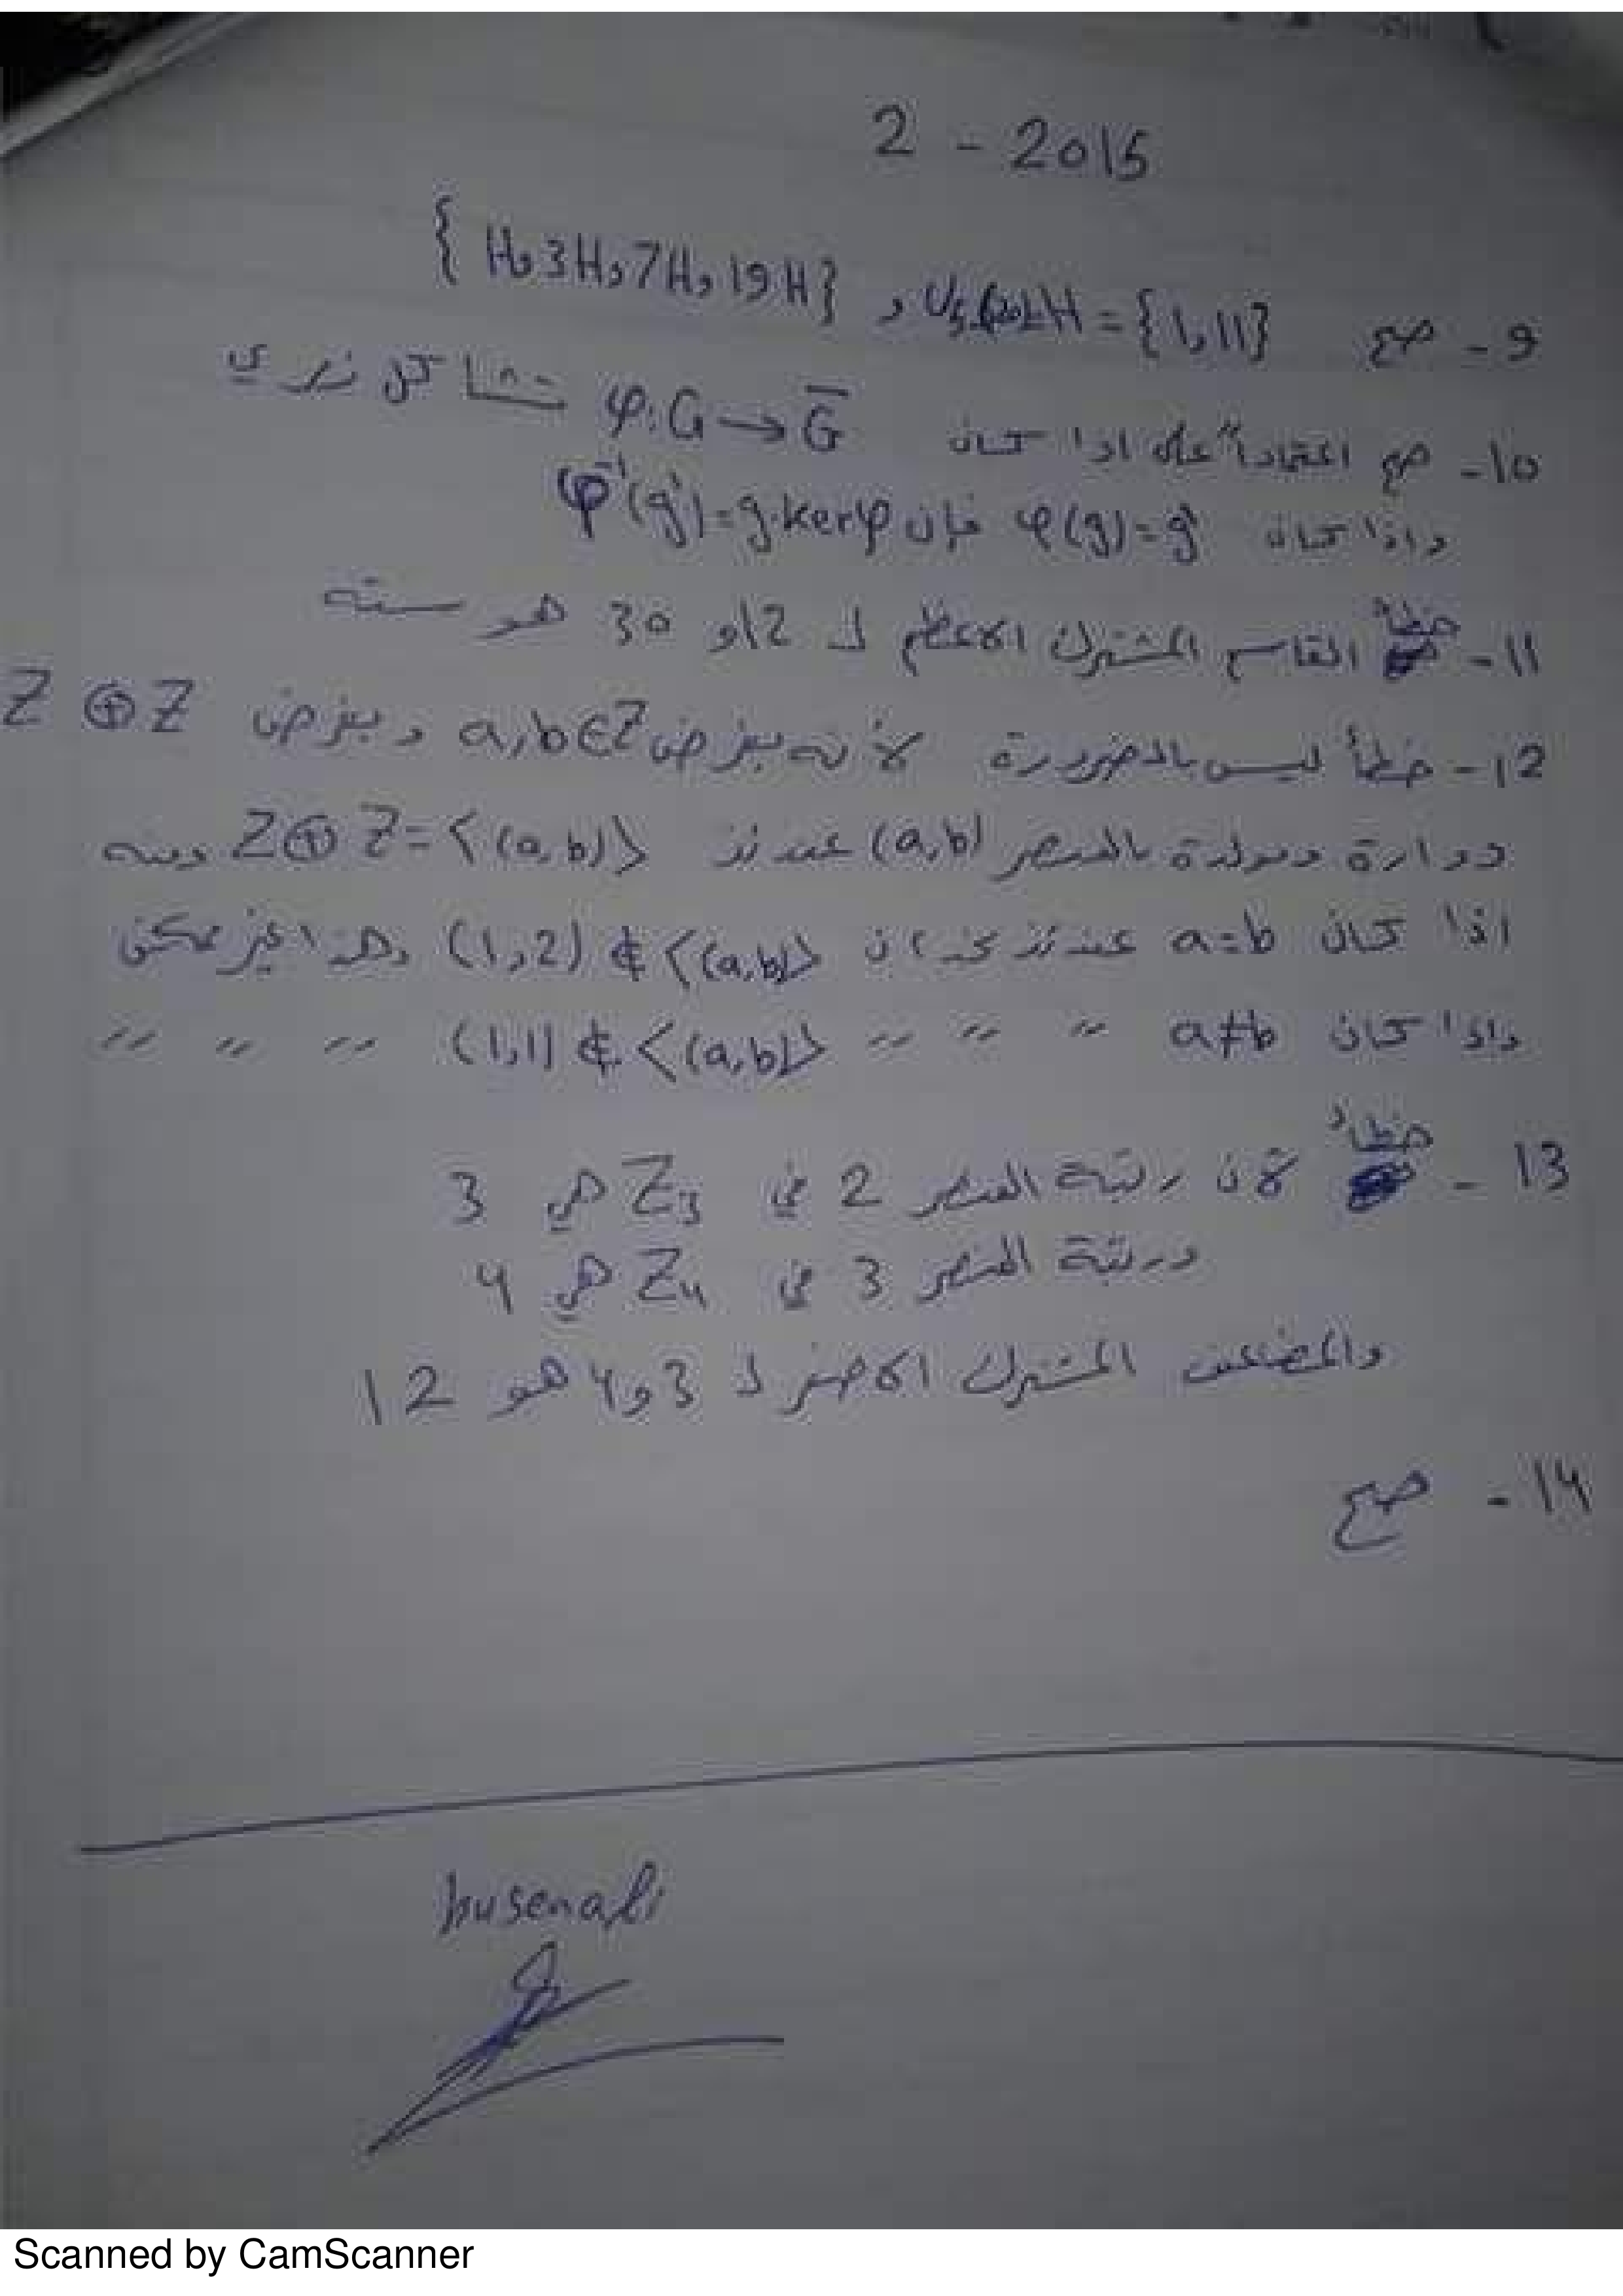 2 - 2015
9 - صح {1,11} = H و {H, 3H, 7H, 19H}
10 - صح اعتماداً على اذا كان φ: G → G̅ تشاكل زمري
واذا كان φ(g) = g' فإن φ⁻¹(g') = g.kerφ
11 - خطأ القاسم المشترك الاعظم لـ 12 و 30 هو ستة
12 - خطأ ليس بالضرورة لأنه بفرض a,b∈Z وبفرض Z ⊕ Z
دوارة ومولدة بالعنصر (a,b) عندئذ Z ⊕ Z = <(a,b)> ومنه
اذا كان a=b عندئذ نجد ان (1,2) ∉ <(a,b)> وهذا غير ممكن
واذا كان a≠b " " " (1,1) ∉ <(a,b)> " " " "
13 - خطأ لأن رتبة العنصر 2 في Z₃ هي 3
ورتبة العنصر 3 في Z₄ هي 4
والمضاعف المشترك الاصغر لـ 3 و 4 هو 12
14 - صح
husenali
Scanned by CamScanner